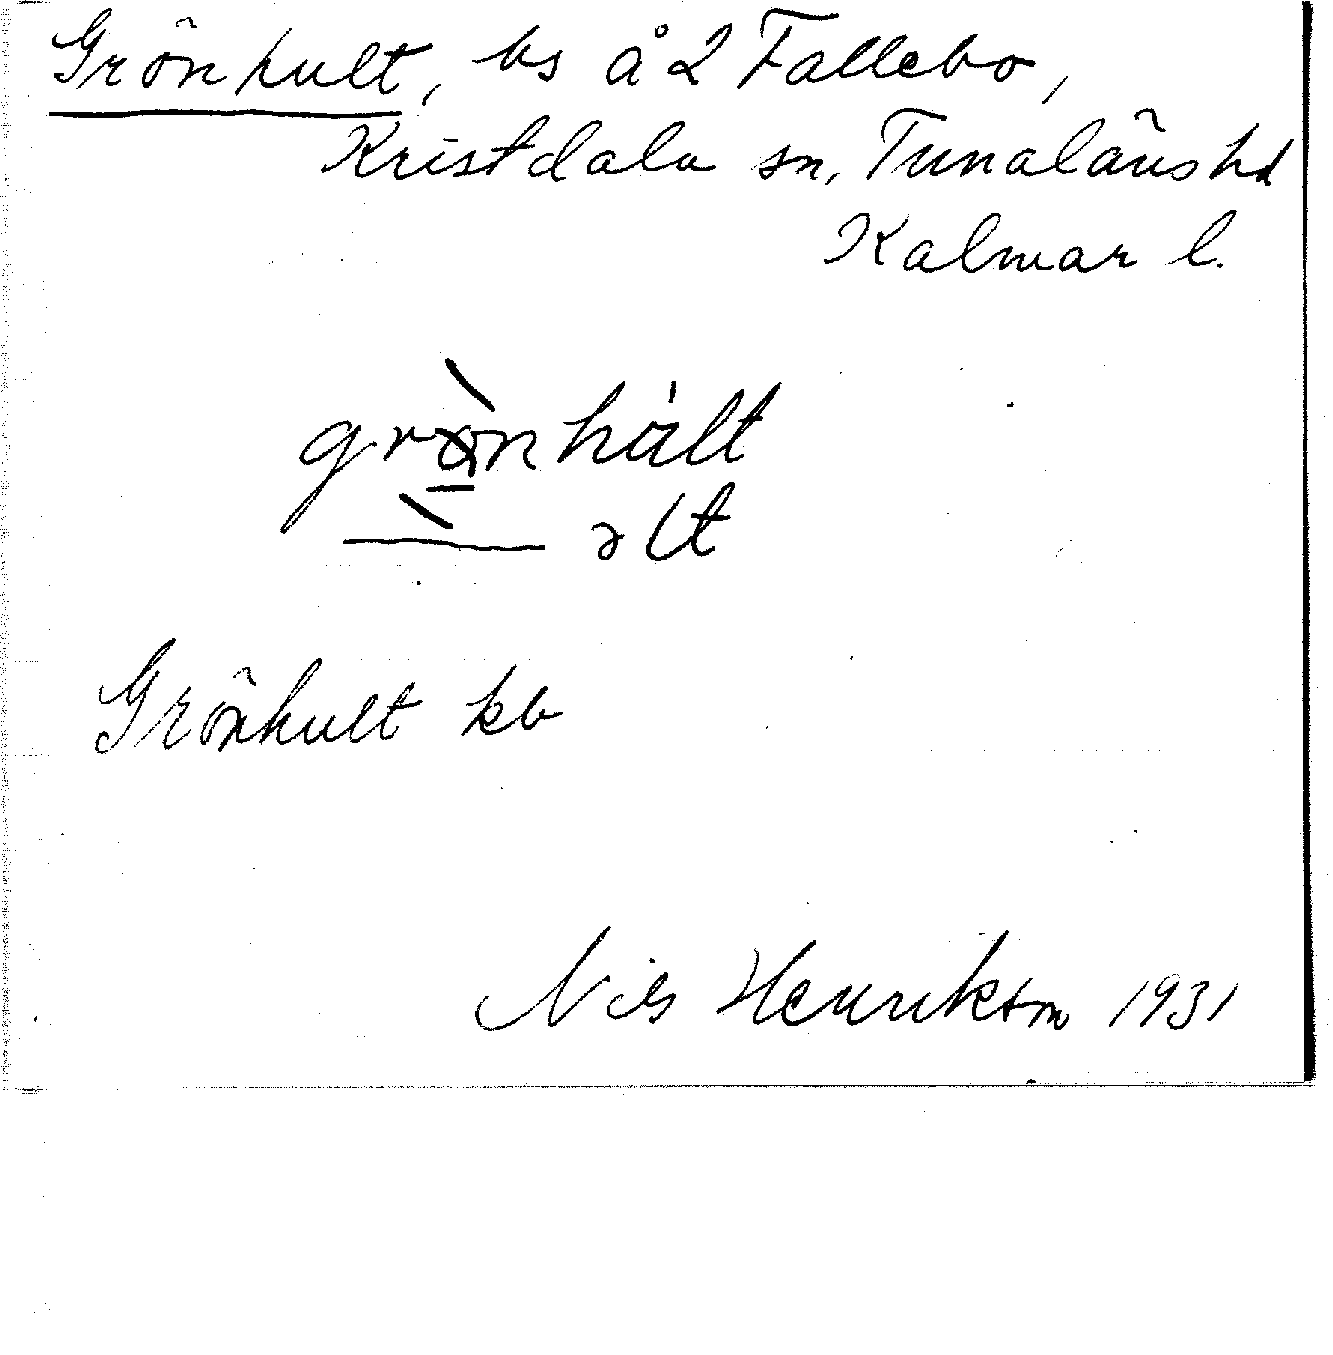 Grönhult, bs å 2 Fallebo,
Kristdala sn, Tunaläns hd
Kalmar l.
grönhàlt
Grönhult kb
Nils Henrikson 1931